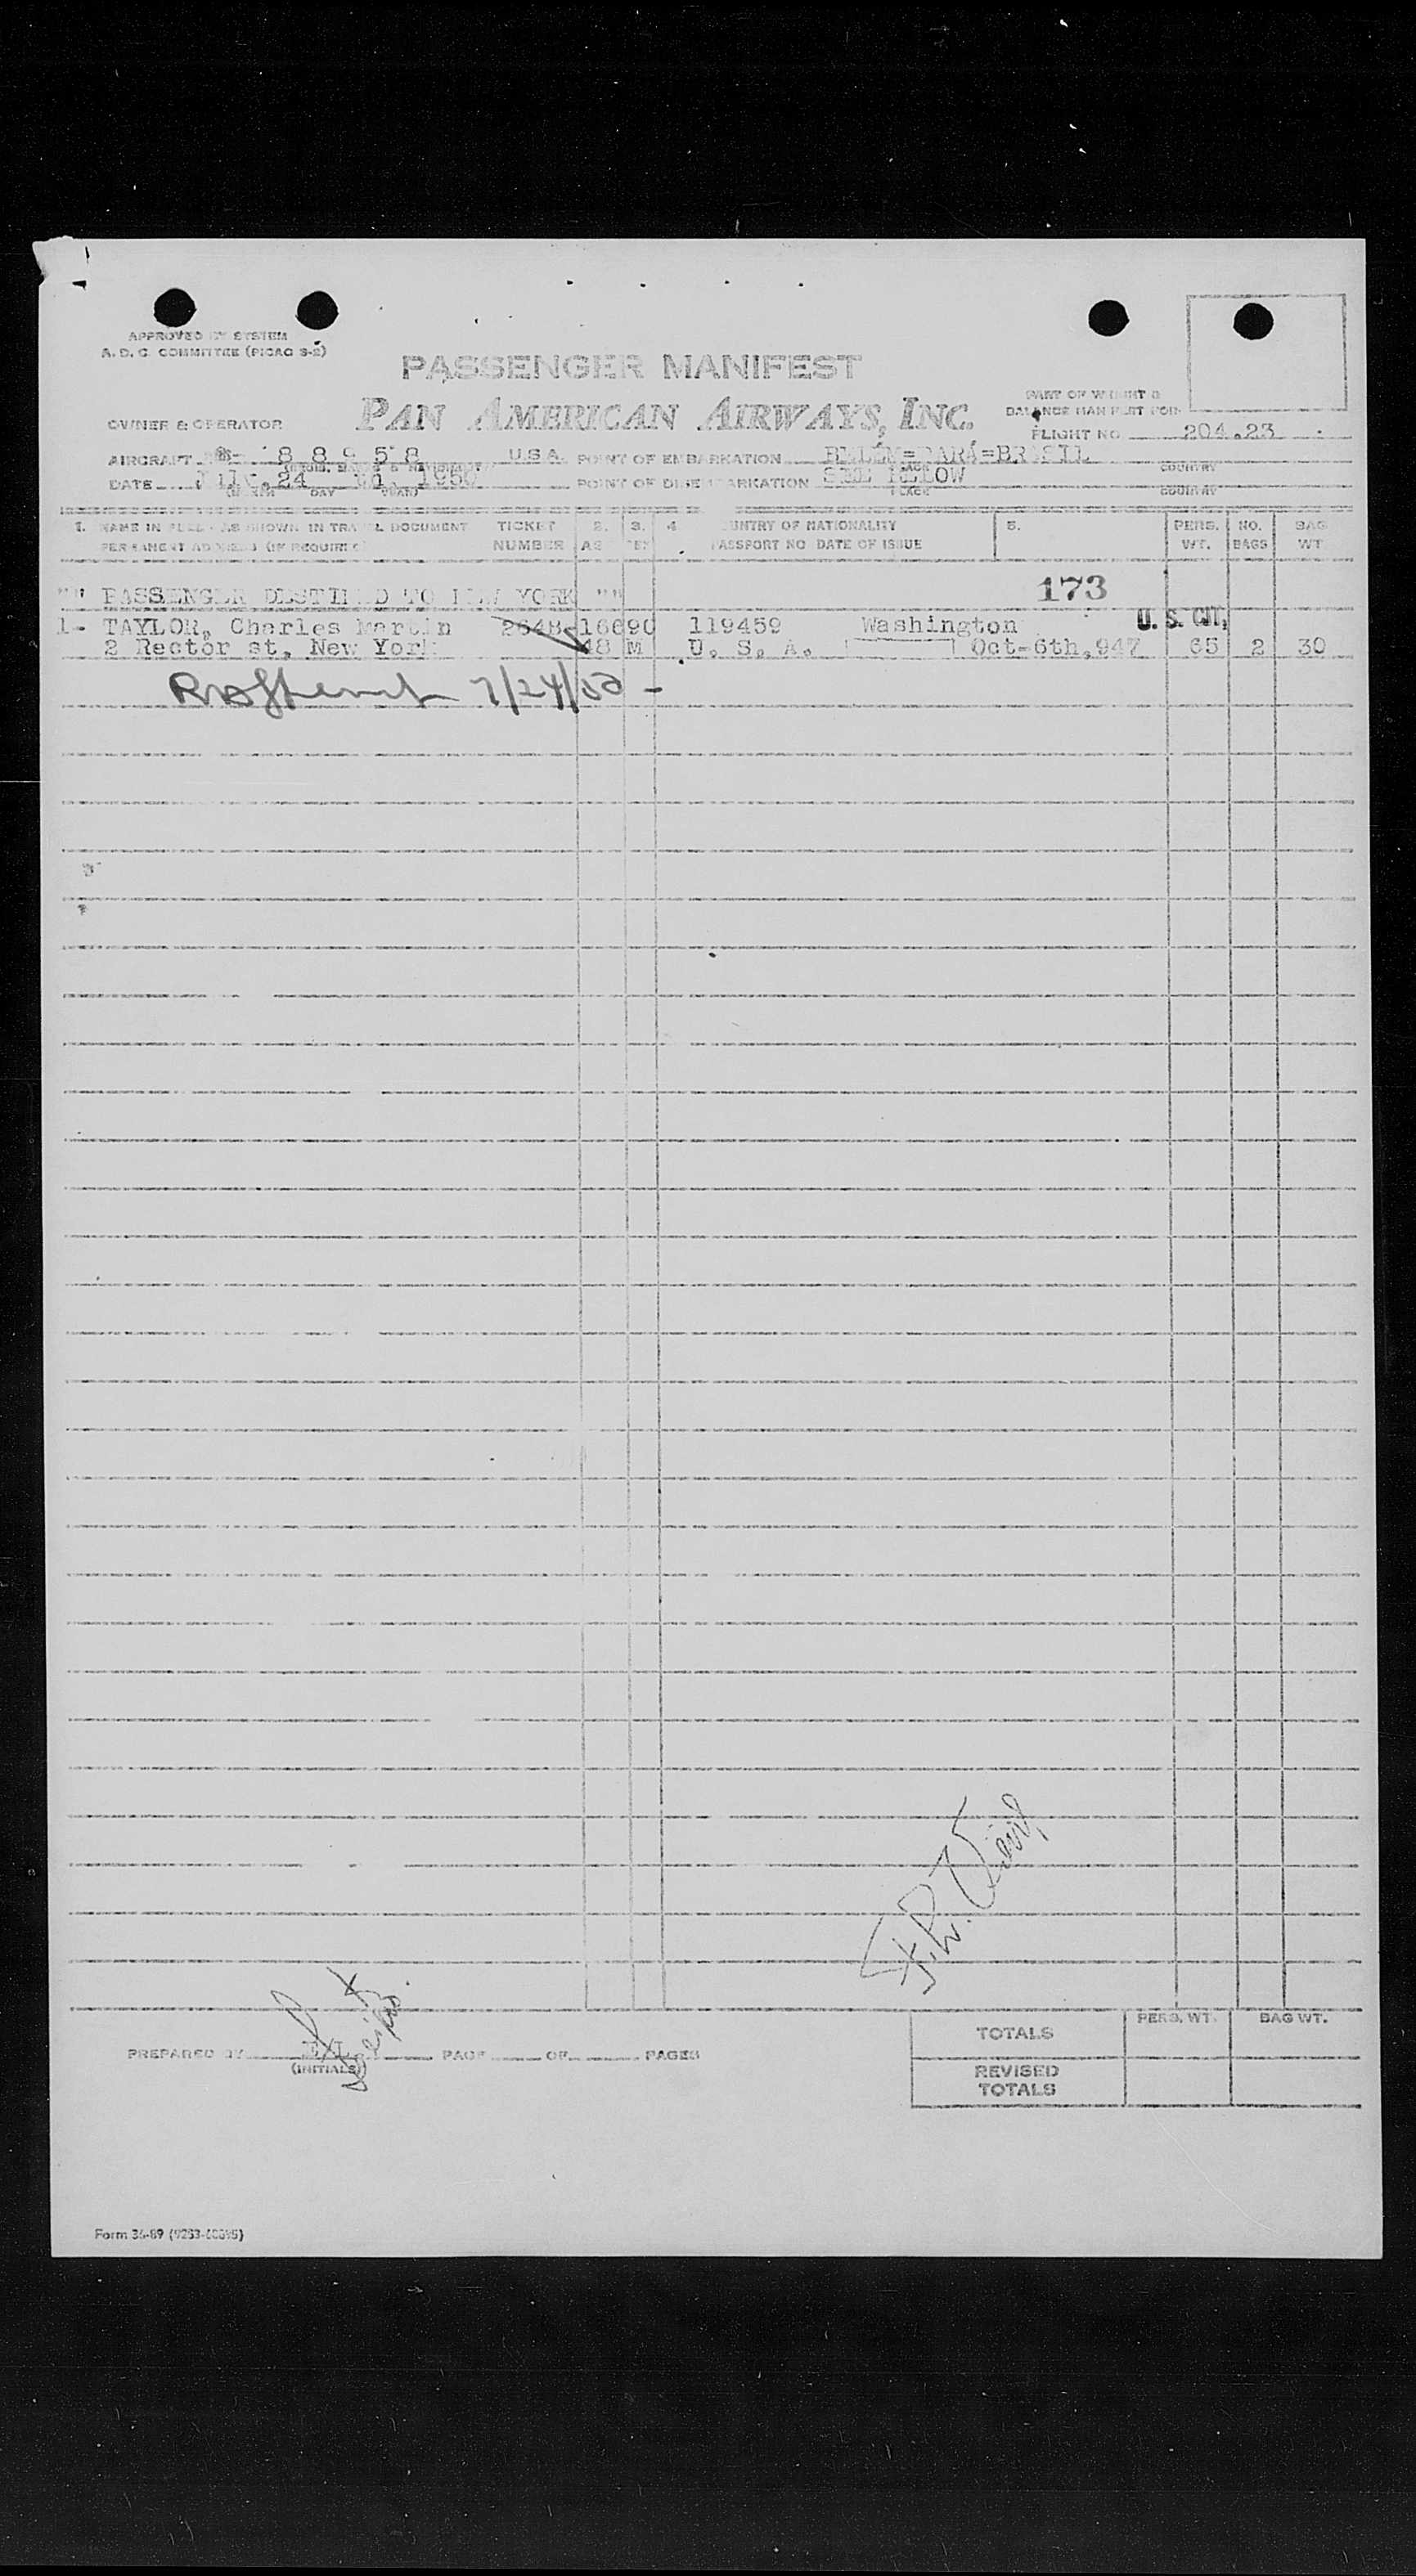 APPROVED BY SYSTEM
A. D. C. COMMITTEE (PICAO S-2)
PASSENGER MANIFEST
PAN AMERICAN AIRWAYS, INC.
OWNER & OPERATOR
PART OF WEIGHT &
BALANCE MANIFEST FOR
FLIGHT NO. 204.23
AIRCRAFT 88958 U.S.A. POINT OF EMBARKATION BELÉM=PARÁ=BRASIL
COUNTRY
DATE 24 1950 POINT OF DISEMBARKATION SEE BELOW
DAY YEAR PLACE COUNTRY
1. NAME IN FULL AS SHOWN IN TRAVEL DOCUMENT TICKET 2. 3. 4 COUNTRY OF NATIONALITY 5. PERS. NO. BAG
PERMANENT ADDRESS (IF REQUIRED) NUMBER PASSPORT NO DATE OF ISSUE WT. BAGS WT
173
"" PASSENGER DESTINED TO NEW YORK ""
1- TAYLOR, Charles Martin 2648-16690 119459 Washington U. S. CIT,
2 Rector st, New York 48 M U. S. A. Oct-6th,947 65 2 30
7/24/50 -
PREPARED BY PAGE OF PAGES
(INITIALS)
TOTALS PERS. WT. BAG WT.
REVISED
TOTALS